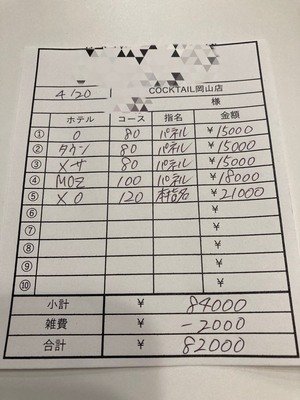 4/20
COCKTAIL岡山店
様
ホテル コース 指名 金額
① O 80 パネル ¥15000
② タウン 80 パネル ¥15000
③ メサ 80 パネル ¥15000
④ MOZ 100 パネル ¥18000
⑤ XO 120 本指名 ¥21000
⑥ ¥
⑦ ¥
⑧ ¥
⑨ ¥
⑩ ¥
小計 ¥ 84000
雑費 ¥ -2000
合計 ¥ 82000